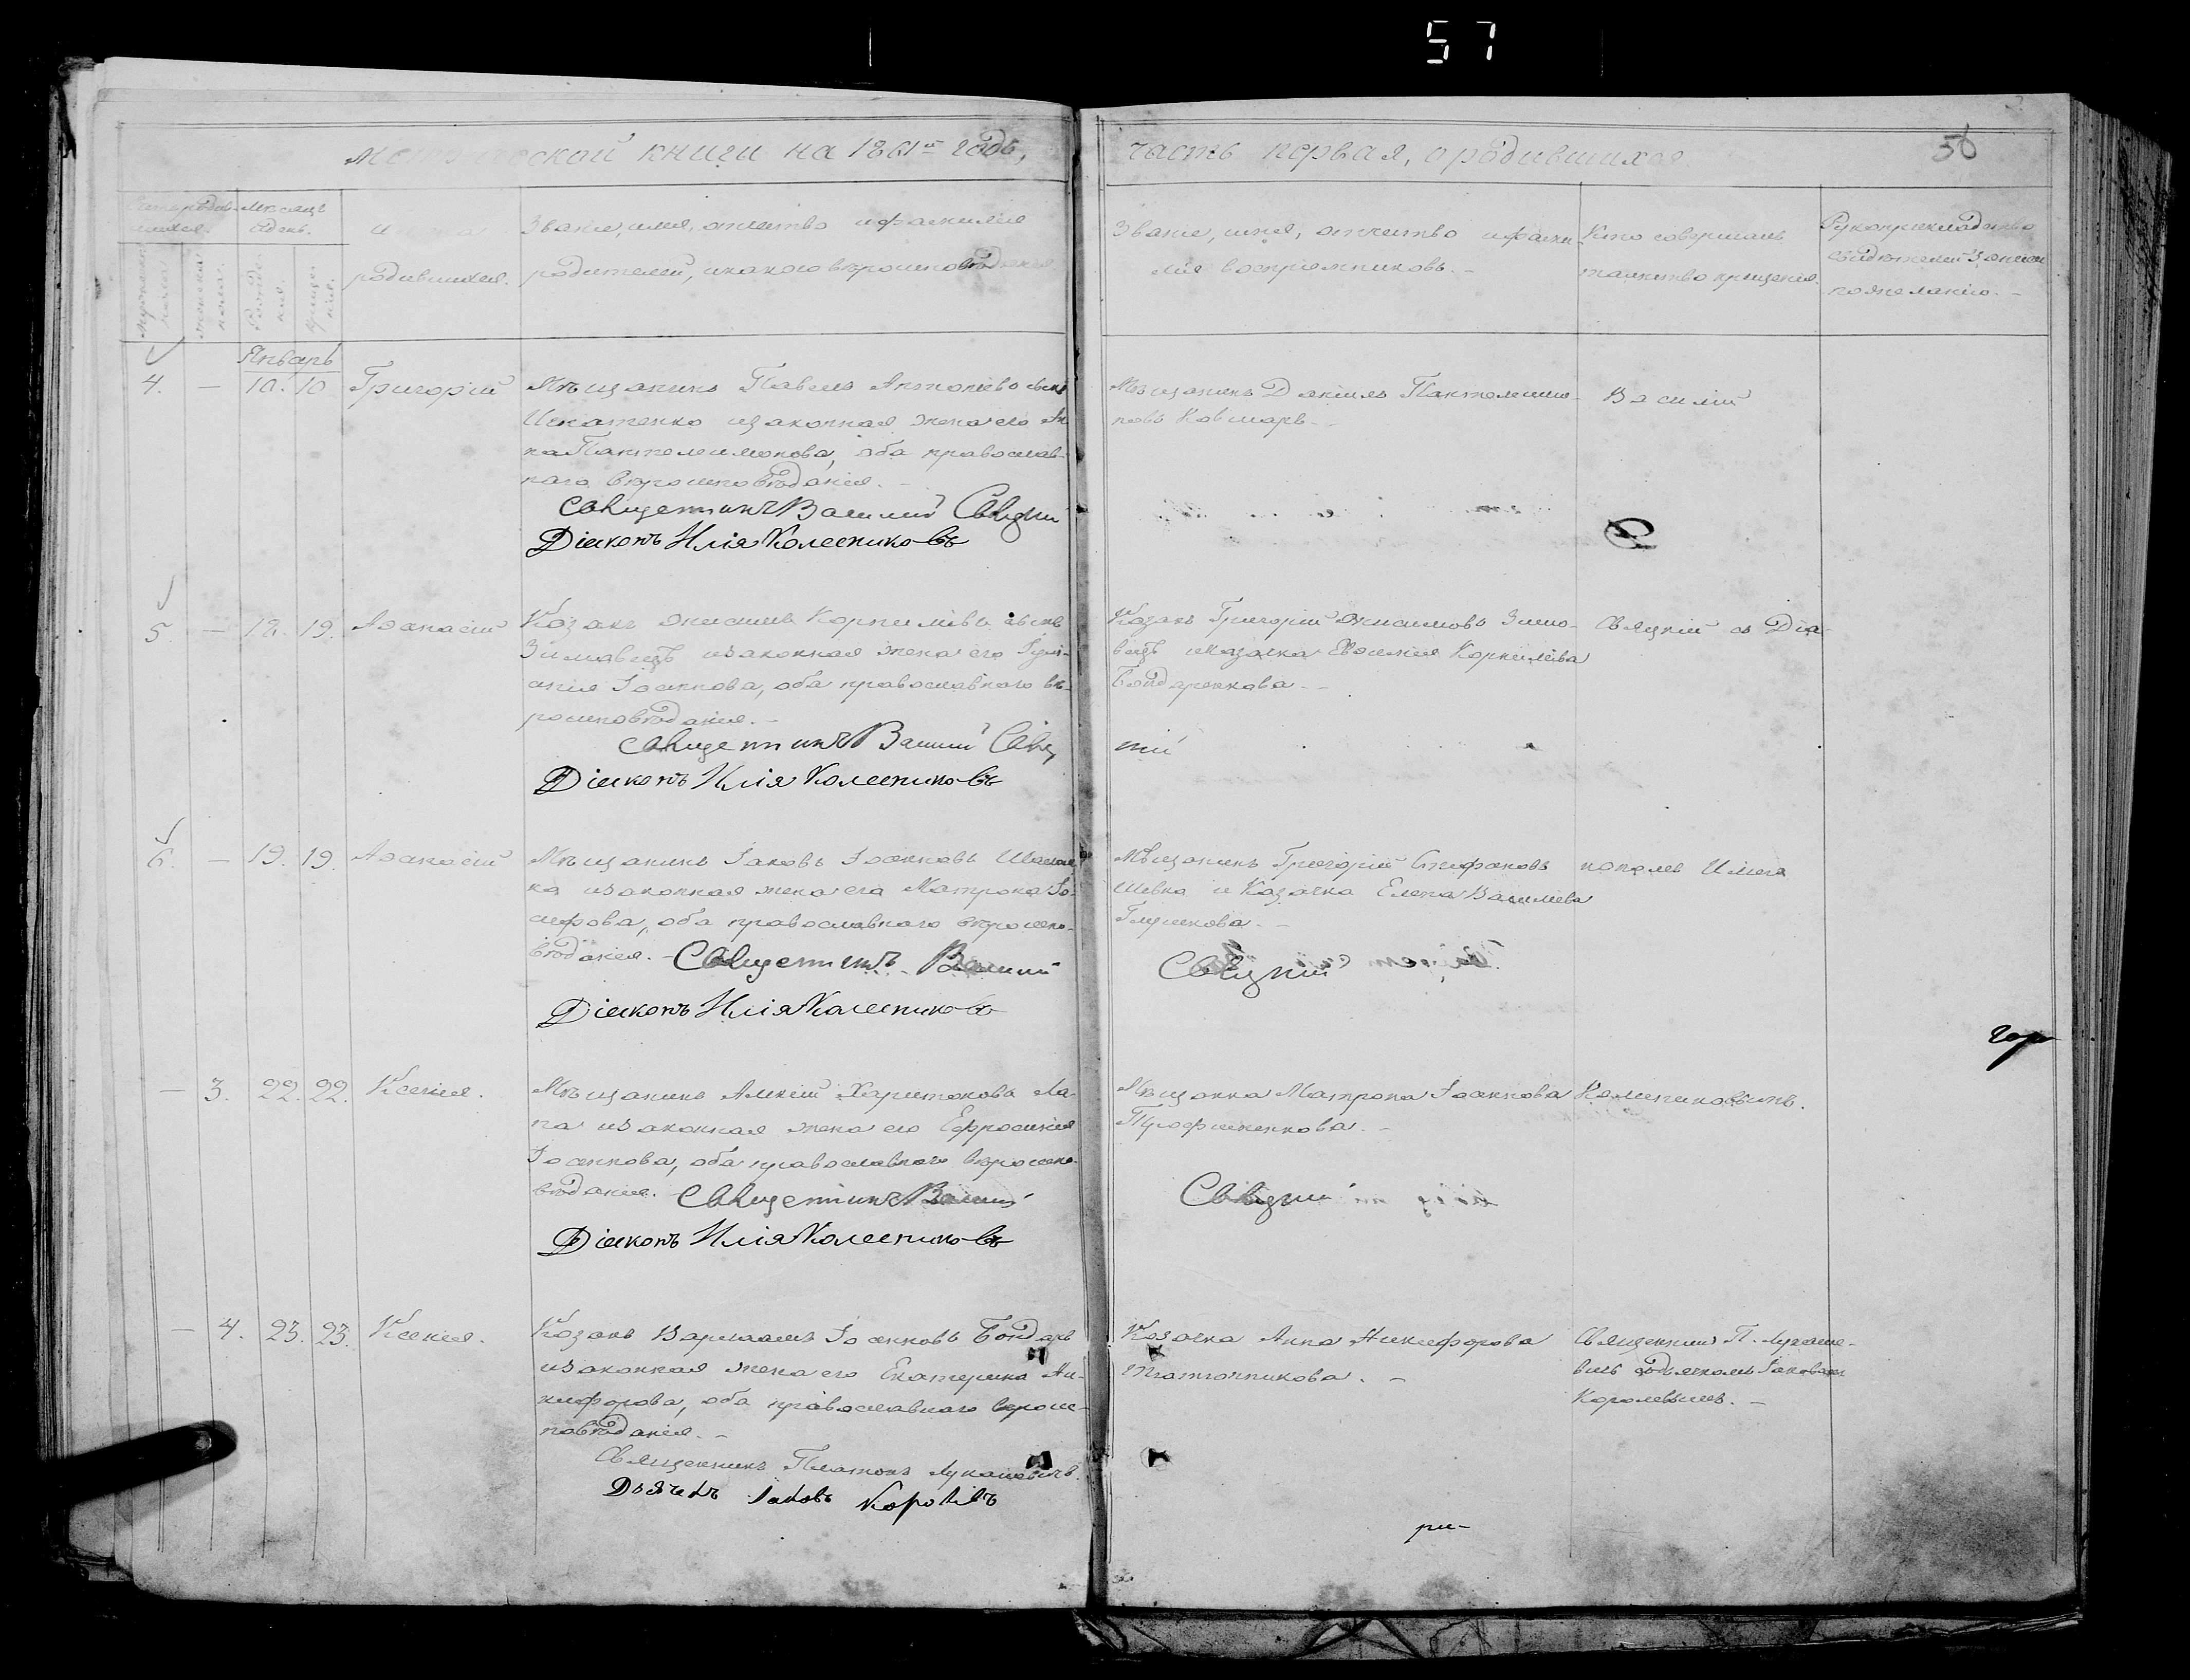 57
56
метрической книги на 1861й годъ,
часть первая, о родившихся.
Месяцъ
и день.
имена
родившихся.
Званіе, имя, отчество и фамилія
родителей, и какого вѣроисповѣданія
Званіе, имя, отчество и фами-
лія воспріемниковъ. -
Кто совершалъ
таинство крещенія.
Рукоприкладство
свидѣтелей записи
по желанію. -
Январь
4. - 10. 10 Григорій
Мѣщанинъ Павелъ Антоніевъ сынъ
Игнатенко и законная жена его Ан
на Пантелеимонова, оба православ-
наго вѣроисповѣданія. -
Священникъ Василий Свяцкий
Діаконъ Илія Колесниковъ
Мѣщанинъ Даніилъ Пантелеимо-
новъ Ковшарь. -
Василій
5. - 18. 19. Аѳанасій
Козакъ Онисимъ Корниліевъ сынъ
Зимовецъ и законная жена его Іулі-
анія Іоаннова, оба православного вѣ-
роисповѣданія. -
Священникъ Василий Свяц
Діаконъ Илія Колесниковъ
Козакъ Григорій Онисимовъ Зимо-
вецъ и козачка Евѳимія Корниліева
Бондаренкова. -
кий
Свяцкій съ Діа-
6. - 19. 19. Аѳанасій
Мѣщанинъ Іаковъ Іоанновъ
ка и законная жена его Матрона Іо-
сифова, оба православного вѣроиспо-
вѣданія. - Священникъ Василий
Діаконъ Илія Колесниковъ
Мѣщанинъ Григорій Стефановъ
Шевка и Козачка Елена Василіева
Глушкова. -
Свяцкий
кономъ Иліею
гор
- 3. 22. 22. Ксенія.
Мѣщанинъ Алексій Харитоновъ Ла-
па и законная жена его Ефросинія
Іоаннова, оба православного вѣроиспо-
вѣданія. Священникъ Василий
Діаконъ Илія Колесниковъ
Мѣщанка Матрона Іоаннова
Свяцкий
Колесниковымъ.
- 4. 23. 23. Ксенія.
Козакъ Варлаамъ Іоанновъ Бондарь
и законная жена его Екатерина Ни-
кифорова, оба православного вѣроис-
повѣданія. -
Священникъ Платонъ Лукашевичъ.
Дьячекъ Іаковъ Королевъ
Козачка Анна Никифорова
Плотникова. -
Священникъ П. Лукаше-
вичъ съ Дьячкомъ Іаковомъ
Королевымъ. -
ри-